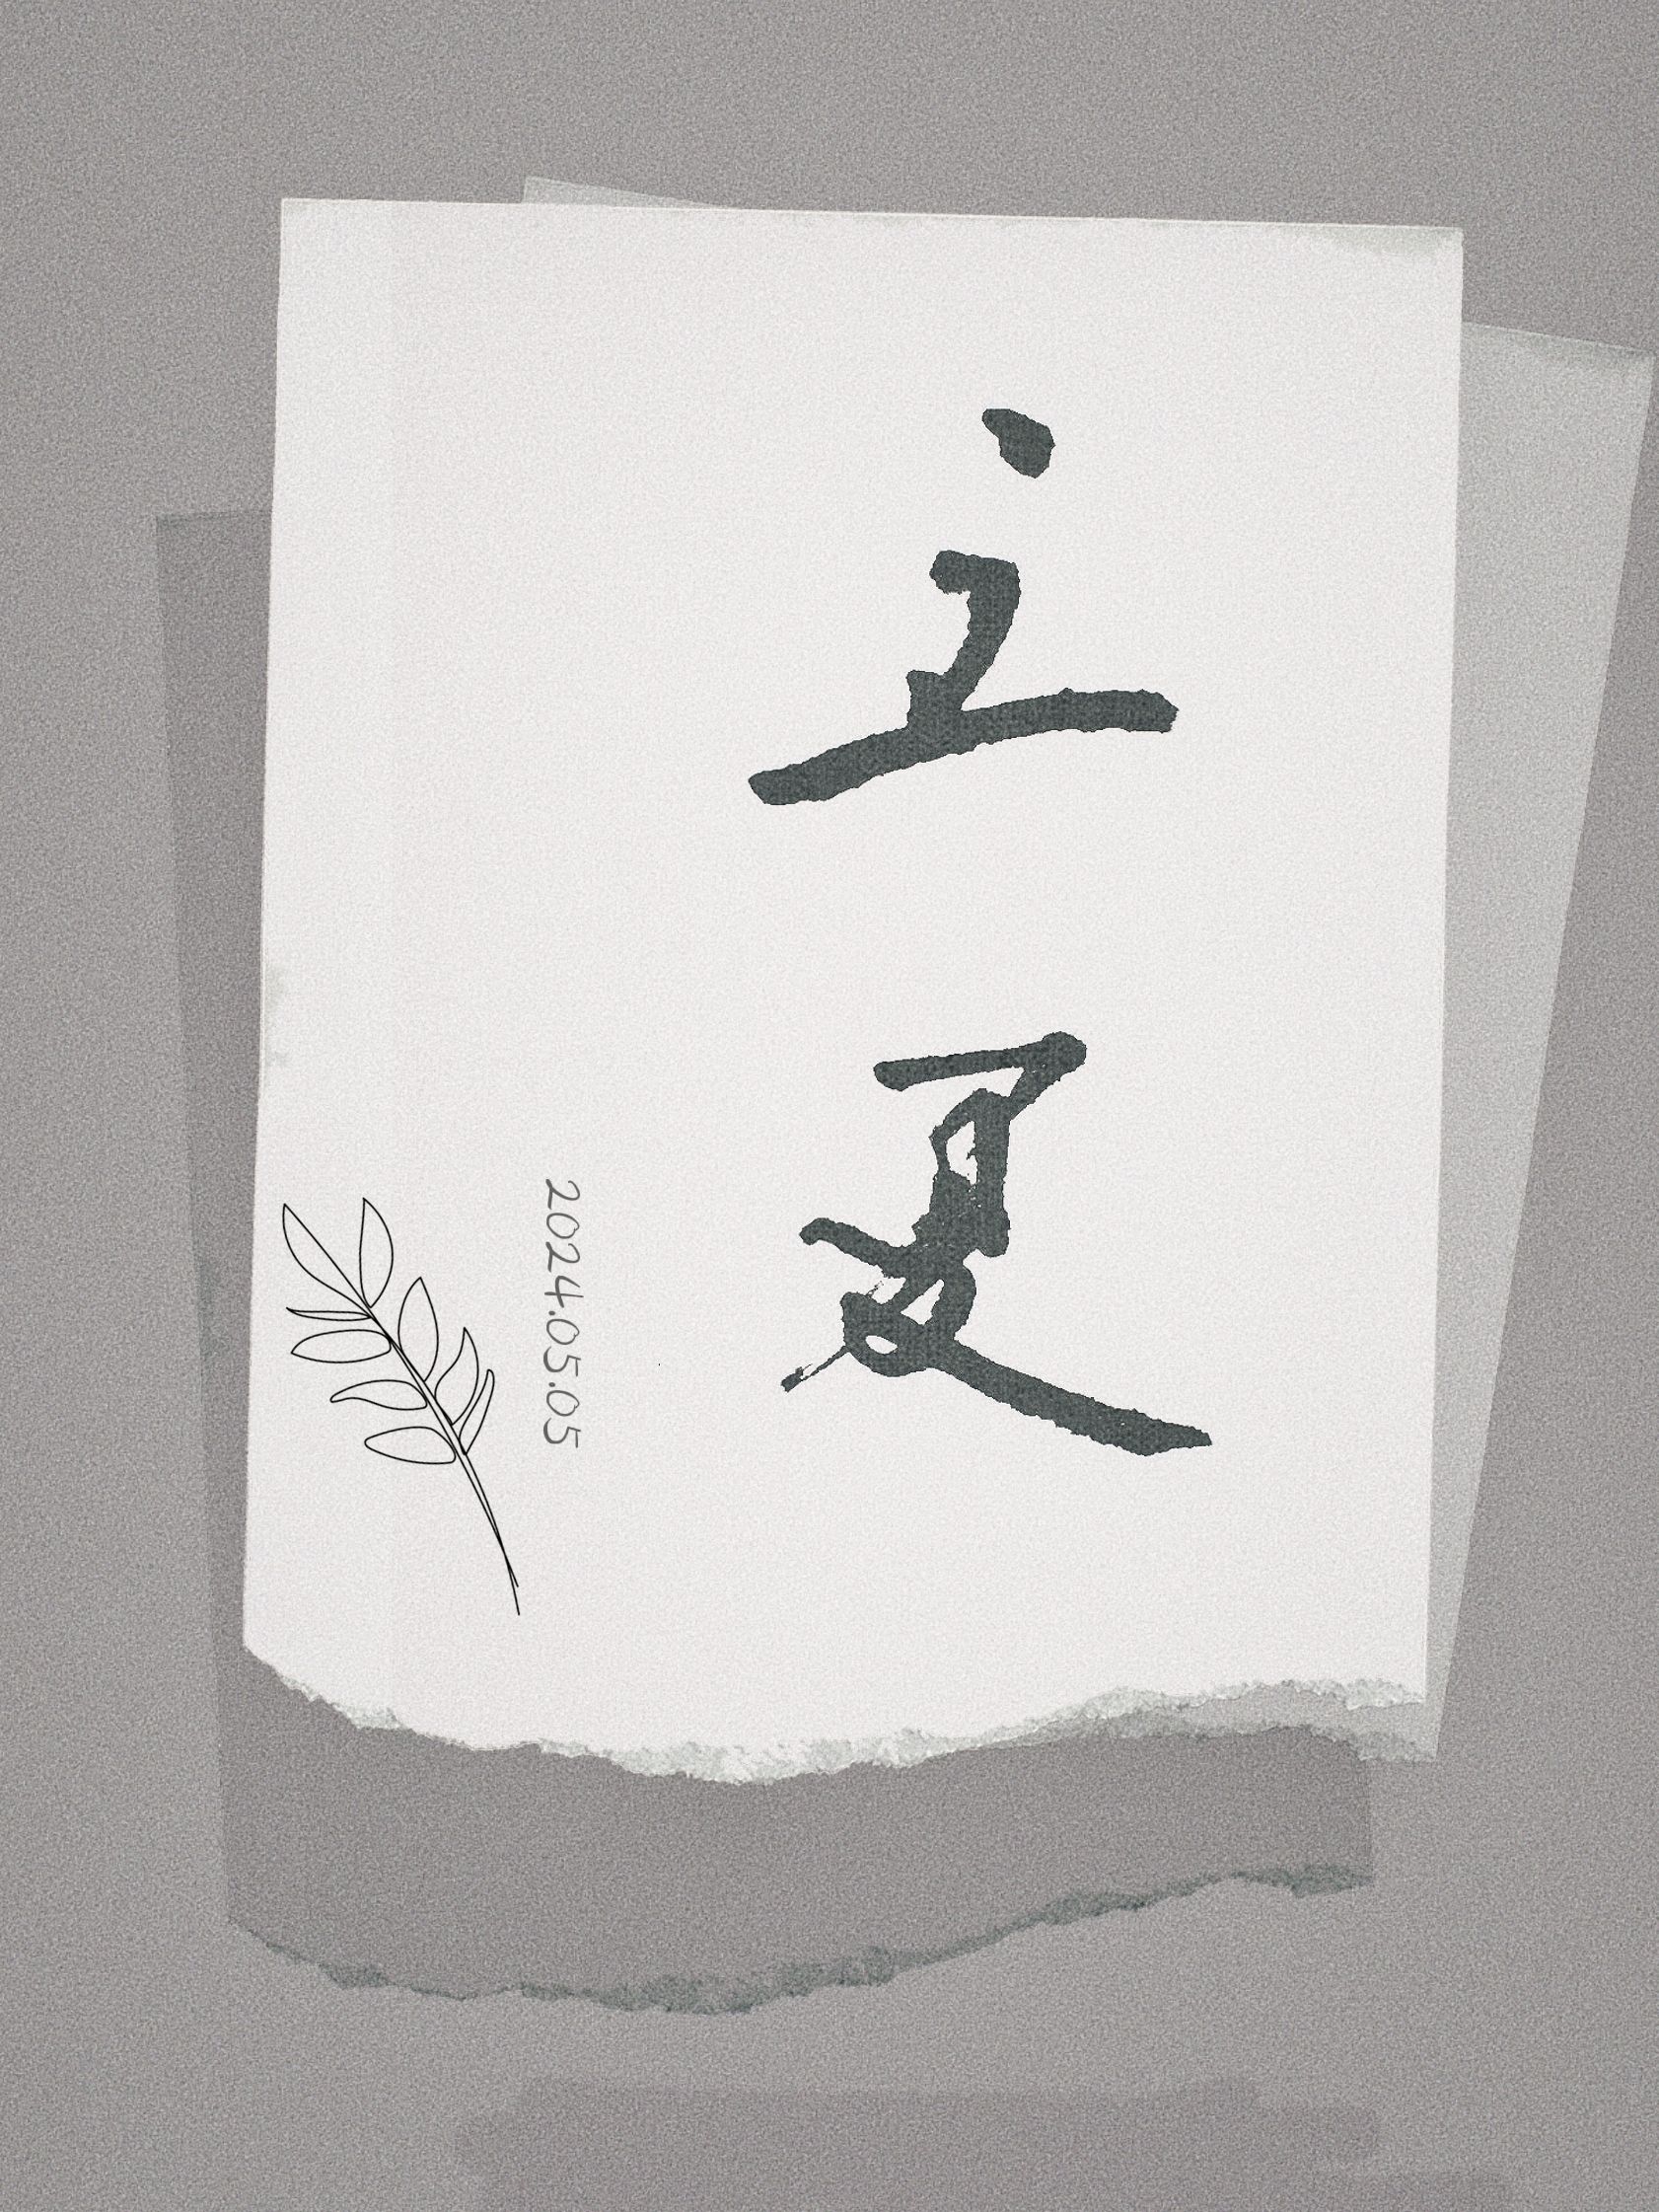 立夏
2024.05.05